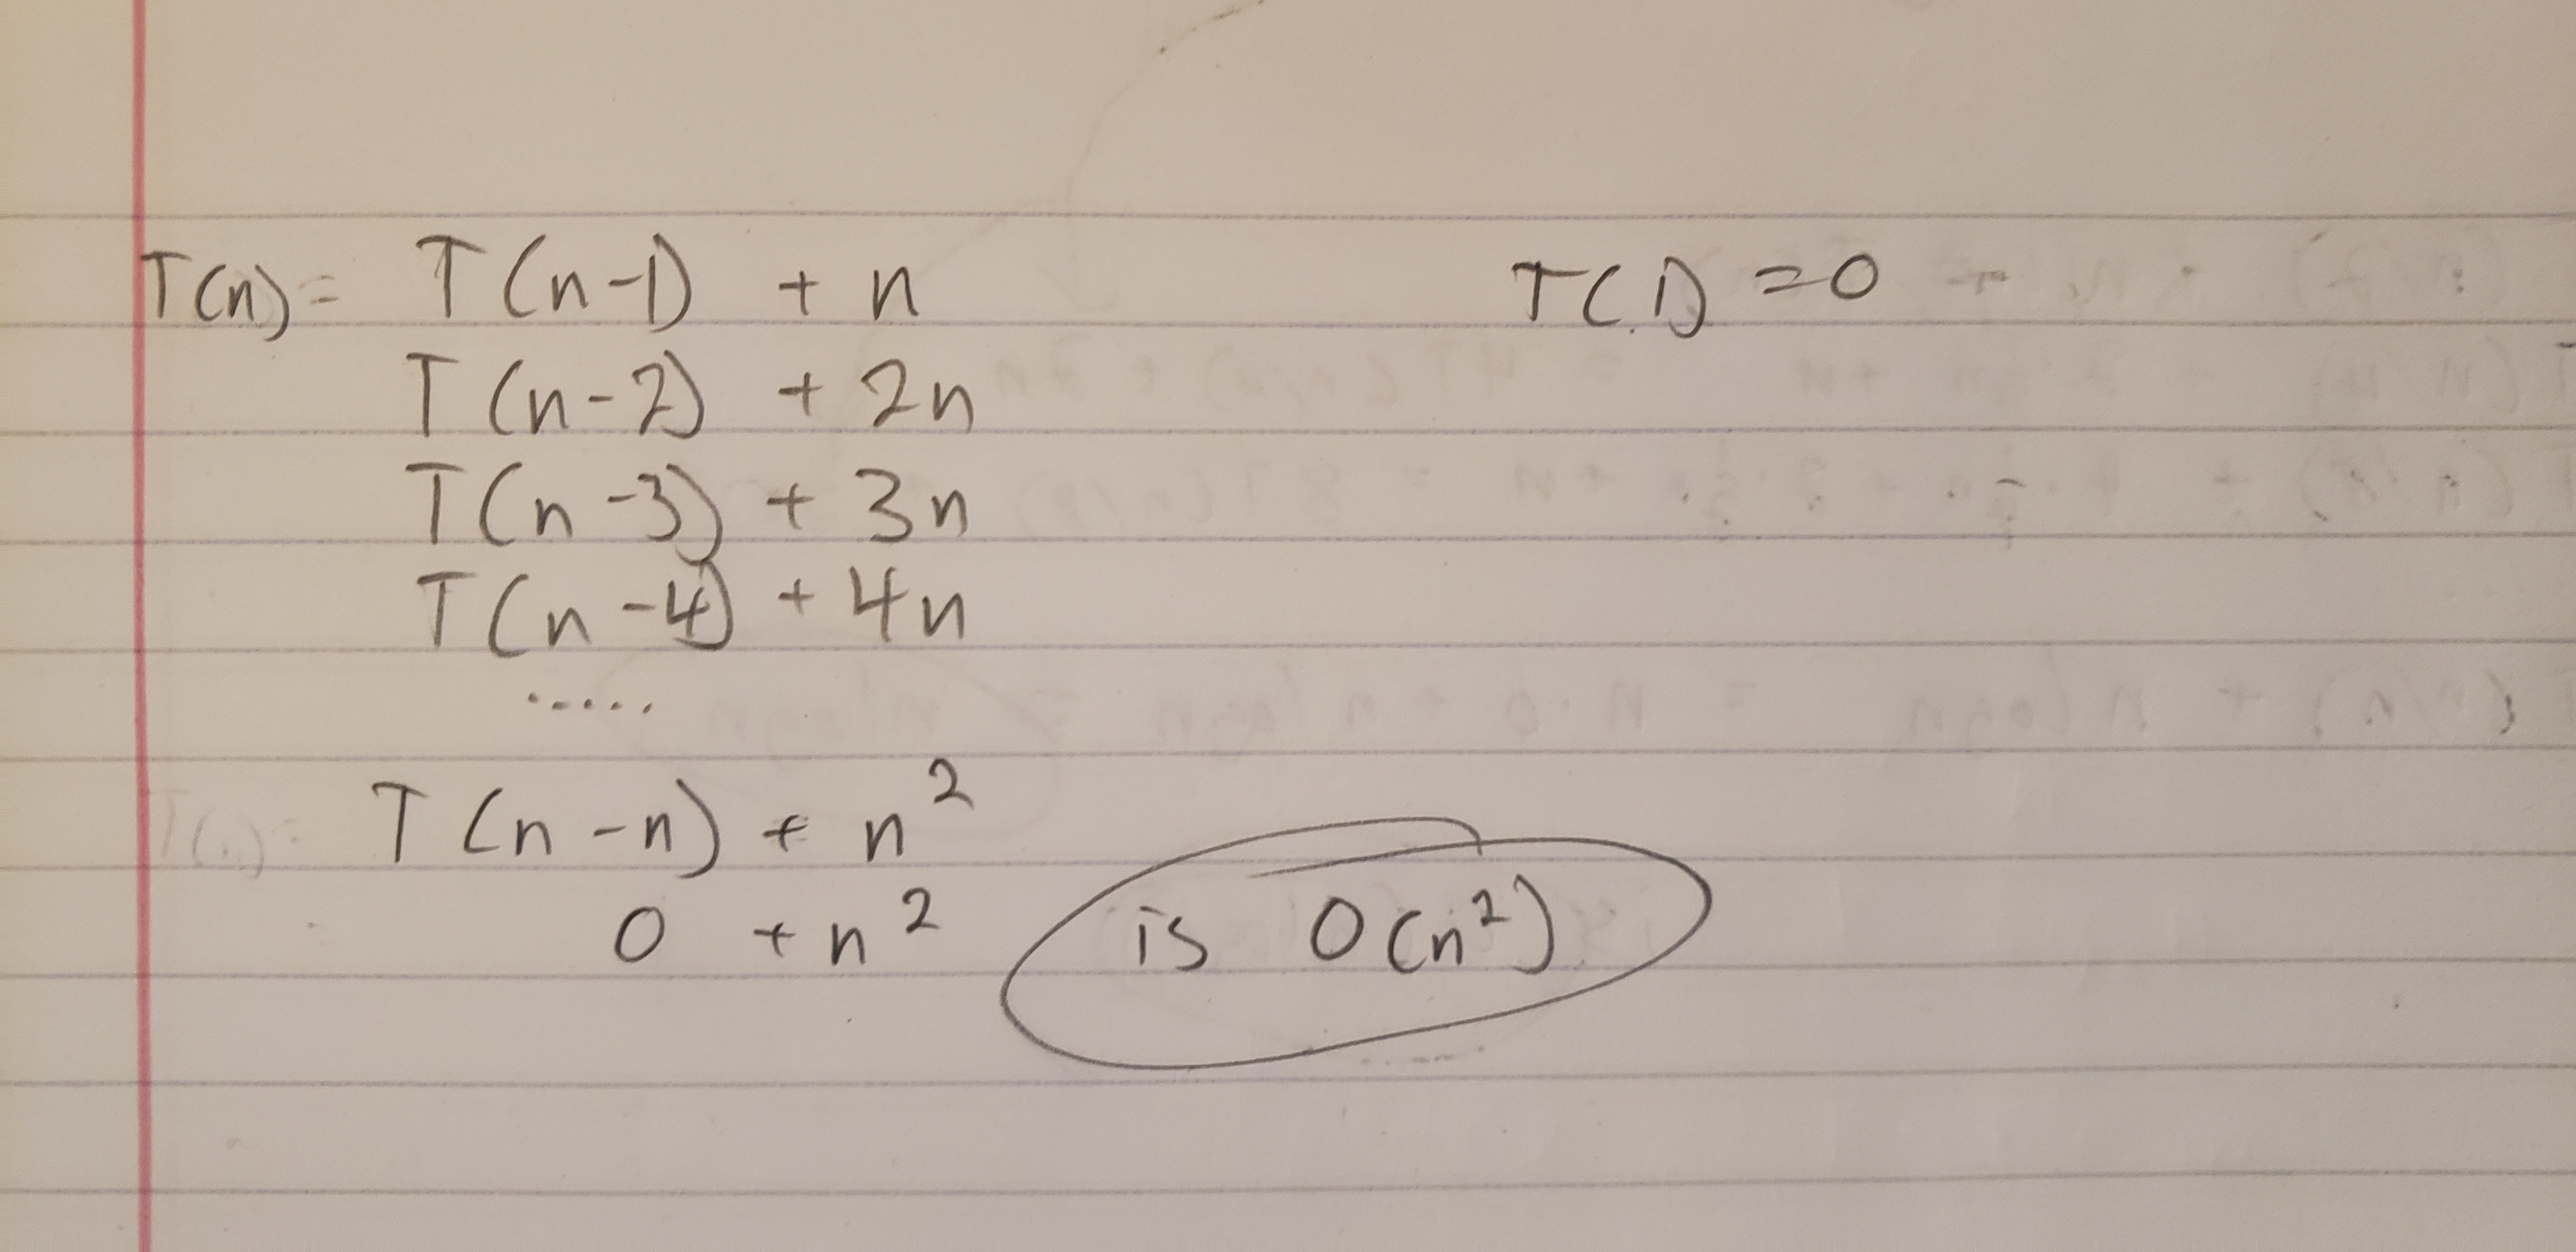 T(n) = T(n-1) + n T(1) = 0
T(n-2) + 2n
T(n-3) + 3n
T(n-4) + 4n
.....
T(n-n) + n²
0 + n² is O(n²)